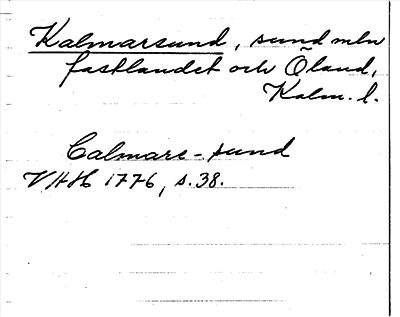 Kalmarsund, sund mln
fastlandet och Öland,
Kalm. l.
Calmare-sund
VHH 1776, s. 38.